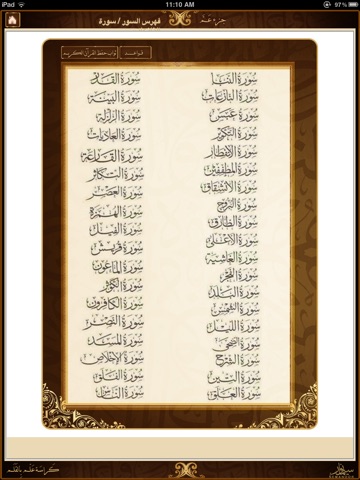 iPad 11:10 AM 97%
جزء عمّ
فهرس السور / سورة
ثواب حفظ القرآن الكريم
سورة النبأ
سورة النازعات
سورة عبس
سورة التكوير
سورة الانفطار
سورة المطففين
سورة الانشقاق
سورة البروج
سورة الطارق
سورة الأعلى
سورة الغاشية
سورة الفجر
سورة البلد
سورة الشمس
سورة الليل
سورة الضحى
سورة الشرح
سورة التين
سورة العلق
سورة القدر
سورة البينة
سورة الزلزلة
سورة العاديات
سورة القارعة
سورة التكاثر
سورة العصر
سورة الهمزة
سورة الفيل
سورة قريش
سورة الماعون
سورة الكوثر
سورة الكافرون
سورة النصر
سورة المسد
سورة الإخلاص
سورة الفلق
سورة الناس
كراسة علم بالقلم